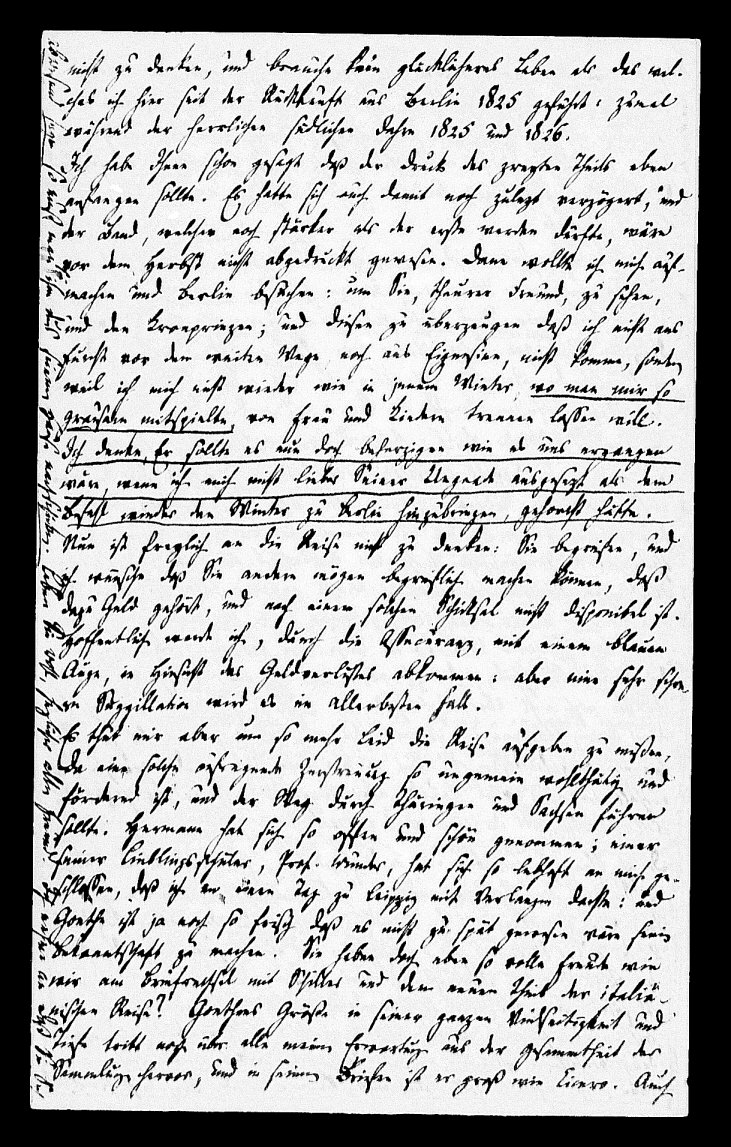 nicht zu denken, und brauche kein glücklicheres Leben als das wel-
ches ich hier seit der Rückkunft aus Berlin 1825 geführt: zumal
während der herrlichen südlichen Jahre 1825 und 1826.
Ich habe Ihnen schon gesagt daß der Druck des zweyten Theils eben
anfangen sollte. Es hatte sich auch damit noch zuletzt verzögert, und
der Band, welcher noch stärker als der erste werden dürfte, wäre
vor dem Herbst nicht abgedruckt gewesen. Dann wollte ich mich auf-
machen und Berlin besuchen: um Sie, theurer Freund, zu sehen,
und den Kronprinzen; und diesen zu überzeugen daß ich nicht aus
Furcht vor dem weiten Wege noch aus Eigensinn, nicht komme, sondern
weil ich mich nicht wieder wie in jenem Winter, wo man mir so
grausam mitspielte, von Frau und Kindern trennen lassen will.
Ich denke, Er sollte es nun doch beherzigen wie es uns ergangen
wäre, wenn ich mich nicht lieber Seiner Ungnade ausgesetzt als dem
Befehl wieder den Winter zu Berlin hinzubringen, gehorcht hätte.
Nun ist freylich an die Reise nicht zu denken: Sie begreifen, und
ich wünsche daß Sie andern mögen begreiflich machen können, daß
dazu Geld gehört, und nach einem solchen Schicksal nicht disponibel ist.
Hoffentlich werde ich, durch die Assecuranz, mit einem blauen
Auge, in Hinsicht des Geldverlustes abkommen: aber eine sehr schwe-
re Suggillation wird es im allerbesten Fall.
Es thut mir aber um so mehr leid die Reise aufgeben zu müssen,
da eine solche aufregende Zerstreuung so ungemein wohlthätig und
fördernd ist, und der Weg durch Thüringen und Sachsen führen
sollte. Hermann hat sich so offen und schön genommen; einer
seiner Lieblingsschüler, Prof. Wunder, hat sich so lebhaft an mich ge-
schlossen, daß ich an einen Tag zu Leipzig mit Verlangen dachte: und
Goethe ist ja noch so frisch daß es nicht zu spät gewesen wäre seine
Bekanntschaft zu machen. Sie haben doch eben so volle Freude wie
wir am Briefwechsel mit Schiller und dem neuen Theil der italiä-
nischen Reise? Goethens Größe in seiner ganzen Vielseitigkeit und
Tiefe tritt noch über alle meine Erwartung aus der Gesammtheit der
Sammlung hervor, und in seinen Briefen ist er groß wie Cicero. Auch